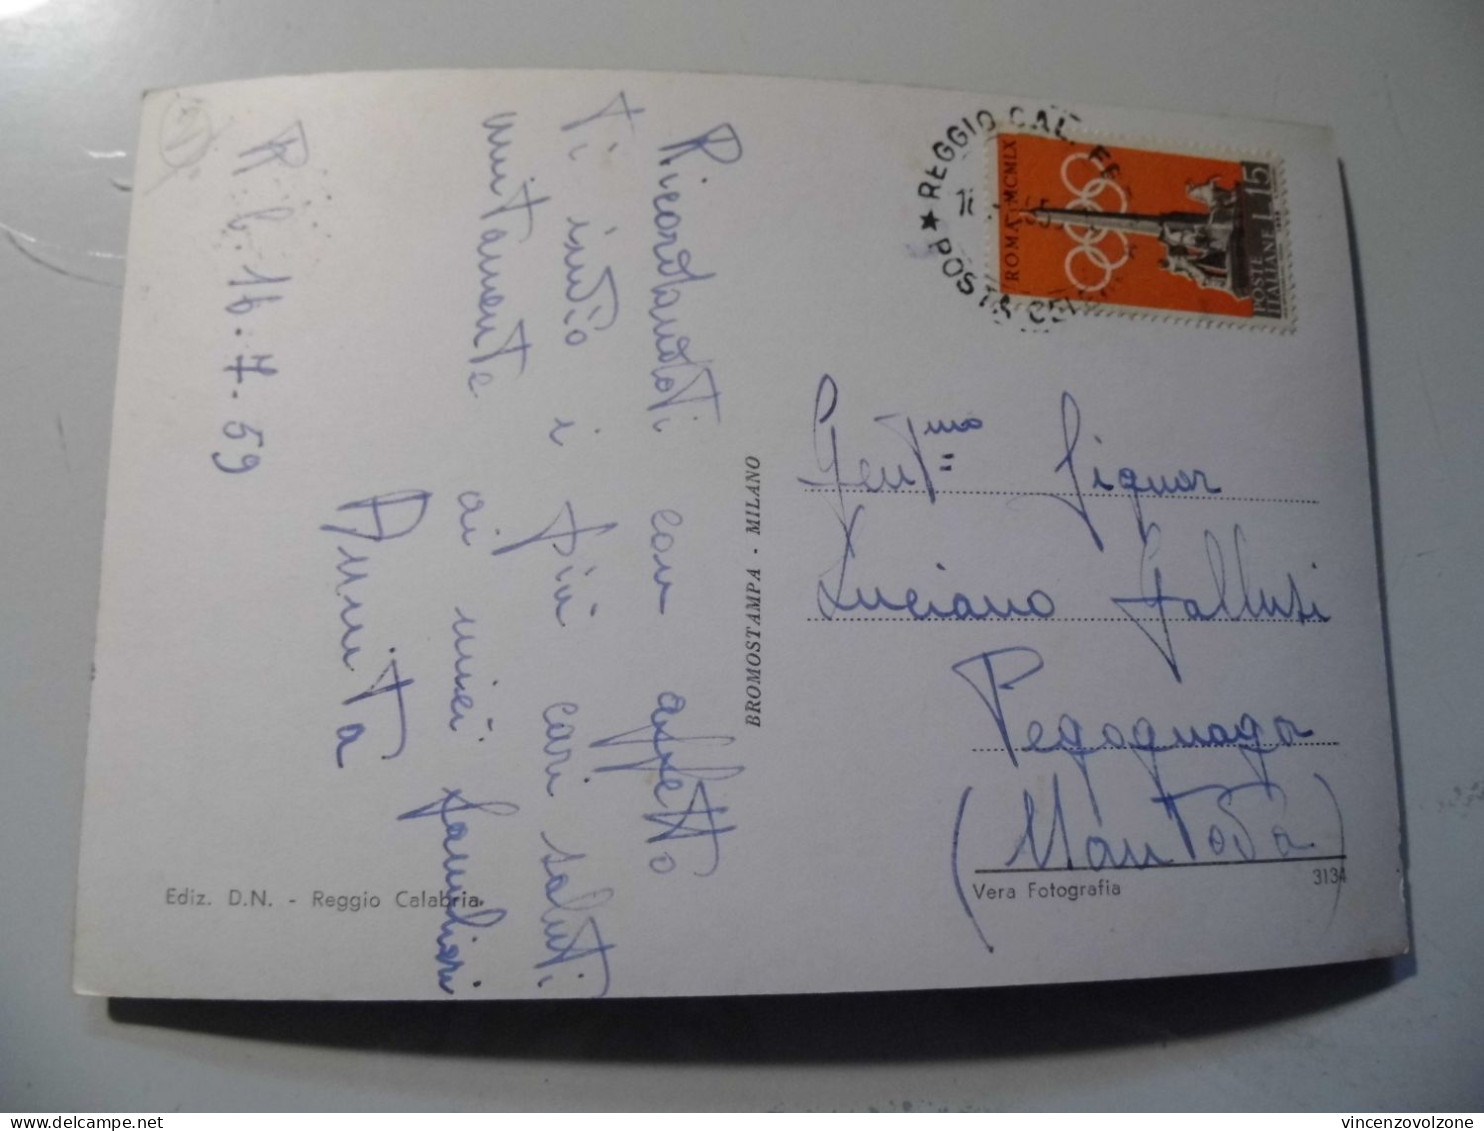 R. C. 16.7.59
Ricordandoti con affetto
ti invio i più cari saluti
unitamente ai miei famigliari
Annita
Ediz. D.N. - Reggio Calabria
BROMOSTAMPA - MILANO
REGGIO CAL.
POSTA
ROMA MCMLX
POSTE
ITALIANE L. 15
Gent.mo Signor
Luciano Galluti
Pegognaga
(Mantova)
Vera Fotografia
3134
vincenzovolzone